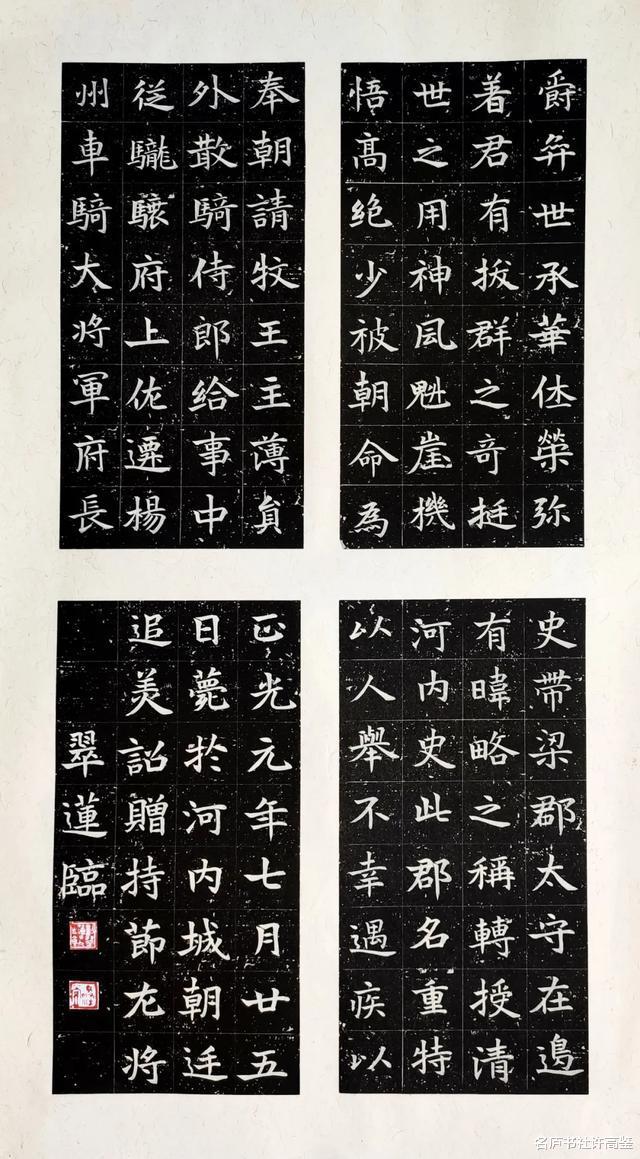 爵弈世承華休榮弥
著君有拔群之奇挺
世之用神風魁崖機
悟高絶少被朝命為
奉朝請牧王主薄員
外散騎侍郎給事中
従䮾驤府上佐遷楊
州車騎大将軍府長
史帶梁郡太守在邉
有暐略之稱轉授清
河内史此郡名重特
以人舉不幸遇疾以
正光元年七月廿五
日薨於河内城朝廷
追美詔贈持節左将
翠蓮臨
名庐书社许高鉴